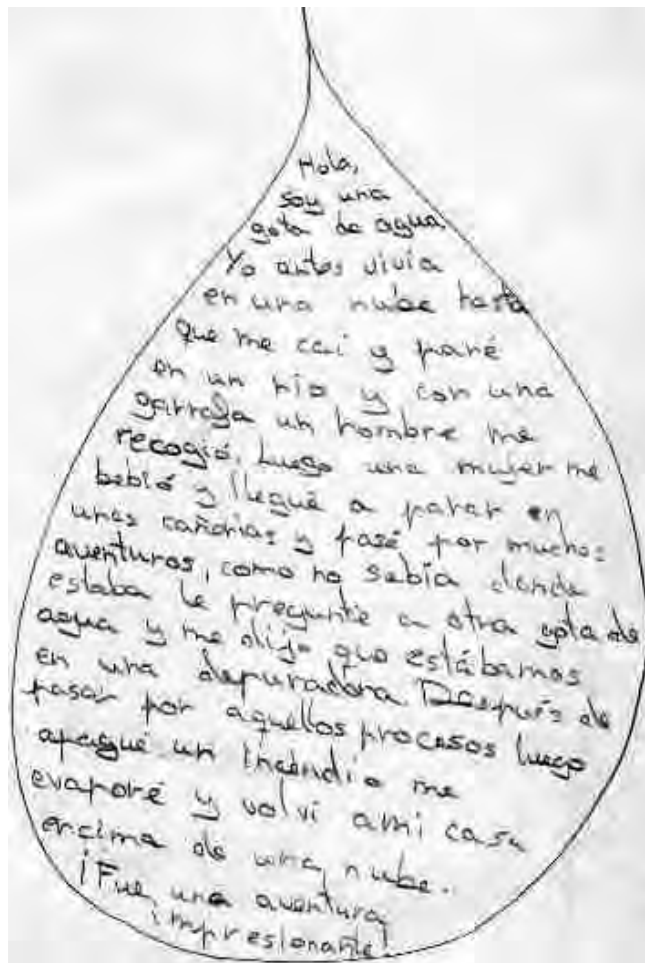 Hola,
soy una
gota de agua.
Yo antes vivía
en una nube hasta
que me caí y paré
en un río y con una
garrafa un hombre me
recogió, luego una mujer me
bebió y llegué a parar en
unas cañerías y pasé por muchas
aventuras, como no sabía donde
estaba le pregunté a otra gota de
agua y me dijo que estábamos
en una depuradora. Después de
pasar por aquellos procesos luego
apagué un incendio me
evaporé y volví ami casa
encima de una nube.
¡Fue una aventura
impresionante!